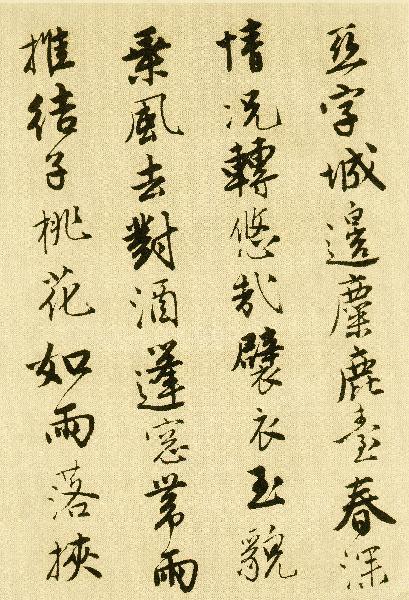 亞字城邊麋鹿臺春深
情況轉悠哉襞衣玉貌
乗風去對酒蓬窓帯雨
推結子桃花如雨落挾